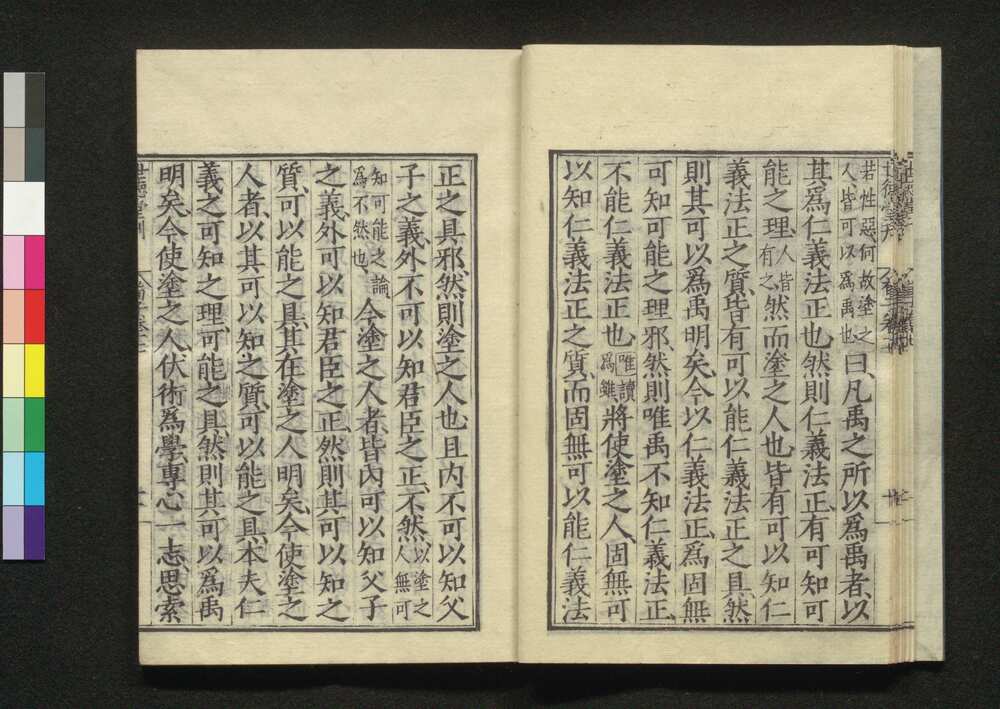 若性惡何故塗之
人皆可以爲禹也曰凡禹之所以爲禹者以
其爲仁義法正也然則仁義法正有可知可
能之理人皆有之然而塗之人也皆有可以知仁
義法正之質皆有可以能仁義法正之具然
則其可以爲禹明矣今以仁義法正爲固無
可知可能之理邪然則唯禹不知仁義法正
不能仁義法正也唯讀爲雖將使塗之人固無可
以知仁義法正之質而固無可以能仁義法
正之具邪然則塗之人也且內不可以知父
子之義外不可以知君臣之正不然以塗之人無可
知可能之論爲不然也今塗之人者皆內可以知父子
之義外可以知君臣之正然則其可以知之
質可以能之具其在塗之人明矣今使塗之
人者以其可以知之質可以能之具本夫仁
義之可知之理可能之具然則其可以爲禹
明矣今使塗之人伏術爲學專心一志思索